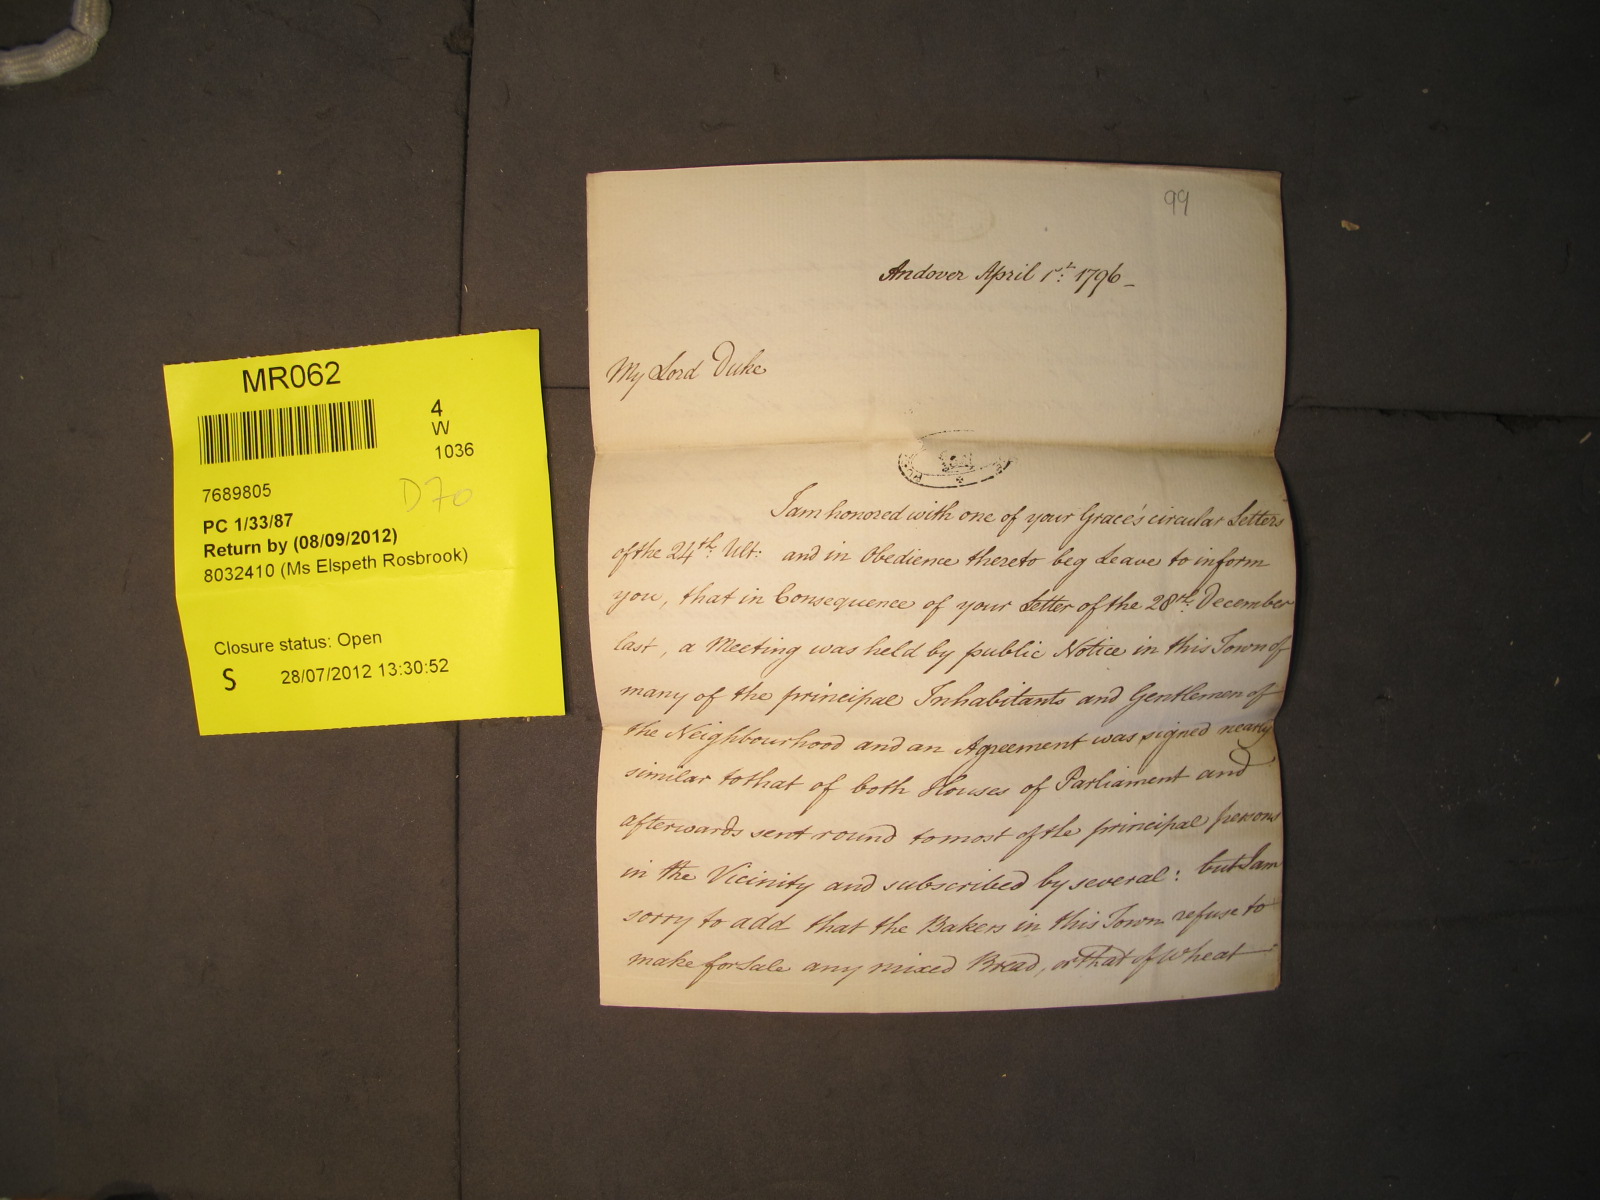 MR062
4
W
1036
7689805
D70
PC 1/33/87
Return by (08/09/2012)
8032410 (Ms Elspeth Rosbrook)
Closure status: Open
S 28/07/2012 13:30:52
99
Andover April 1st: 1796_
My Lord Duke
I am honored with one of your Grace's circular Letters
of the 24th: Ult: and in Obedience thereto beg Leave to inform
you, that in Consequence of your Letter of the 28th: December
last, a Meeting was held by public Notice in this Town of
many of the principal Inhabitants and Gentlemen of
the Neighbourhood and an Agreement was signed nearly
similar to that of both Houses of Parliament and
afterwards sent round to most of the principal persons
in the Vicinity and subscribed by several: but I am
sorry to add that the Bakers in this Town refuse to
make for Sale any mixed Bread, or that of Wheat